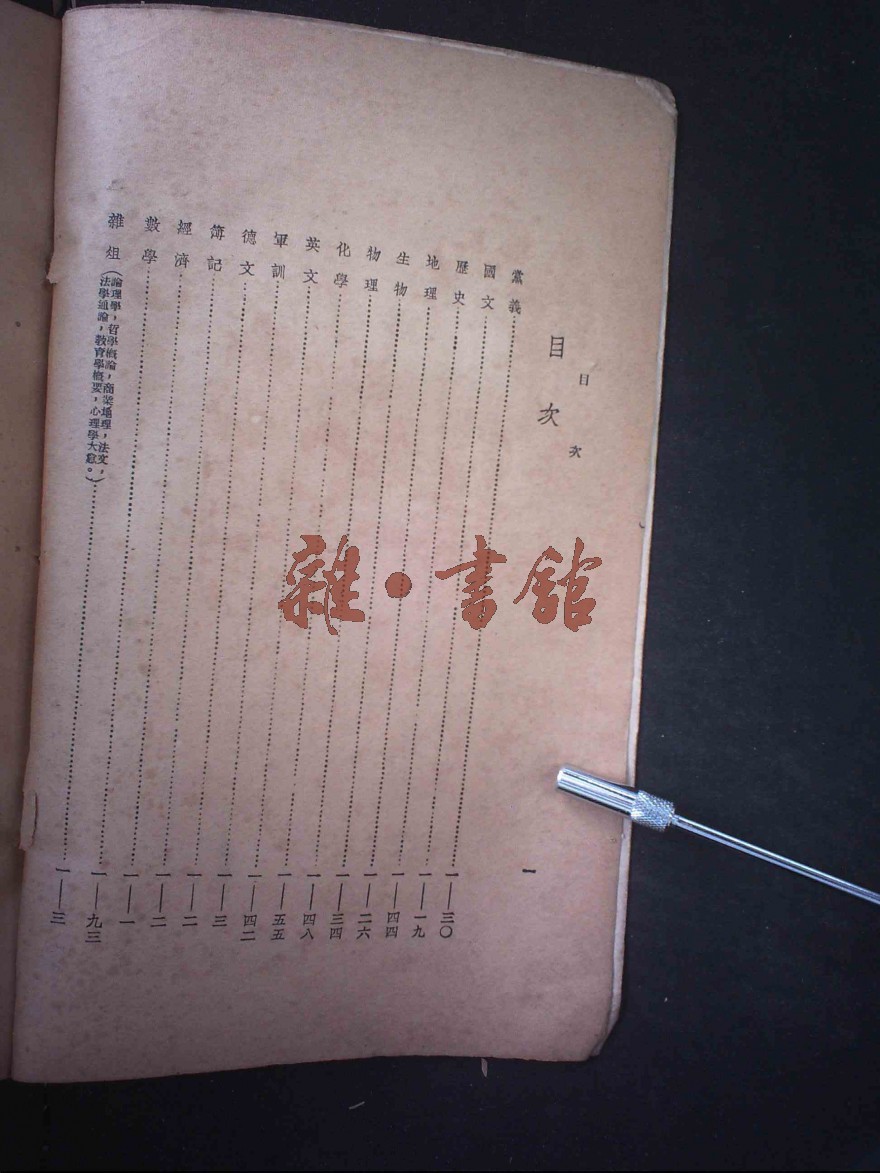 目次
目次
黨義……一—三〇
國文……一—一九
歷史……一—四四
地理……一—二六
生物……一—三四
物理……一—四八
化學……一—五五
英文……一—四二
軍訓……一—三
德文……一—二
簿記……一—二
經濟……一—一
數學……一—九三
雜俎（論理學，哲學概論，商業地理，法文，法學通論，教育學概要，心理學大意。）……一—三
一
雜·書館